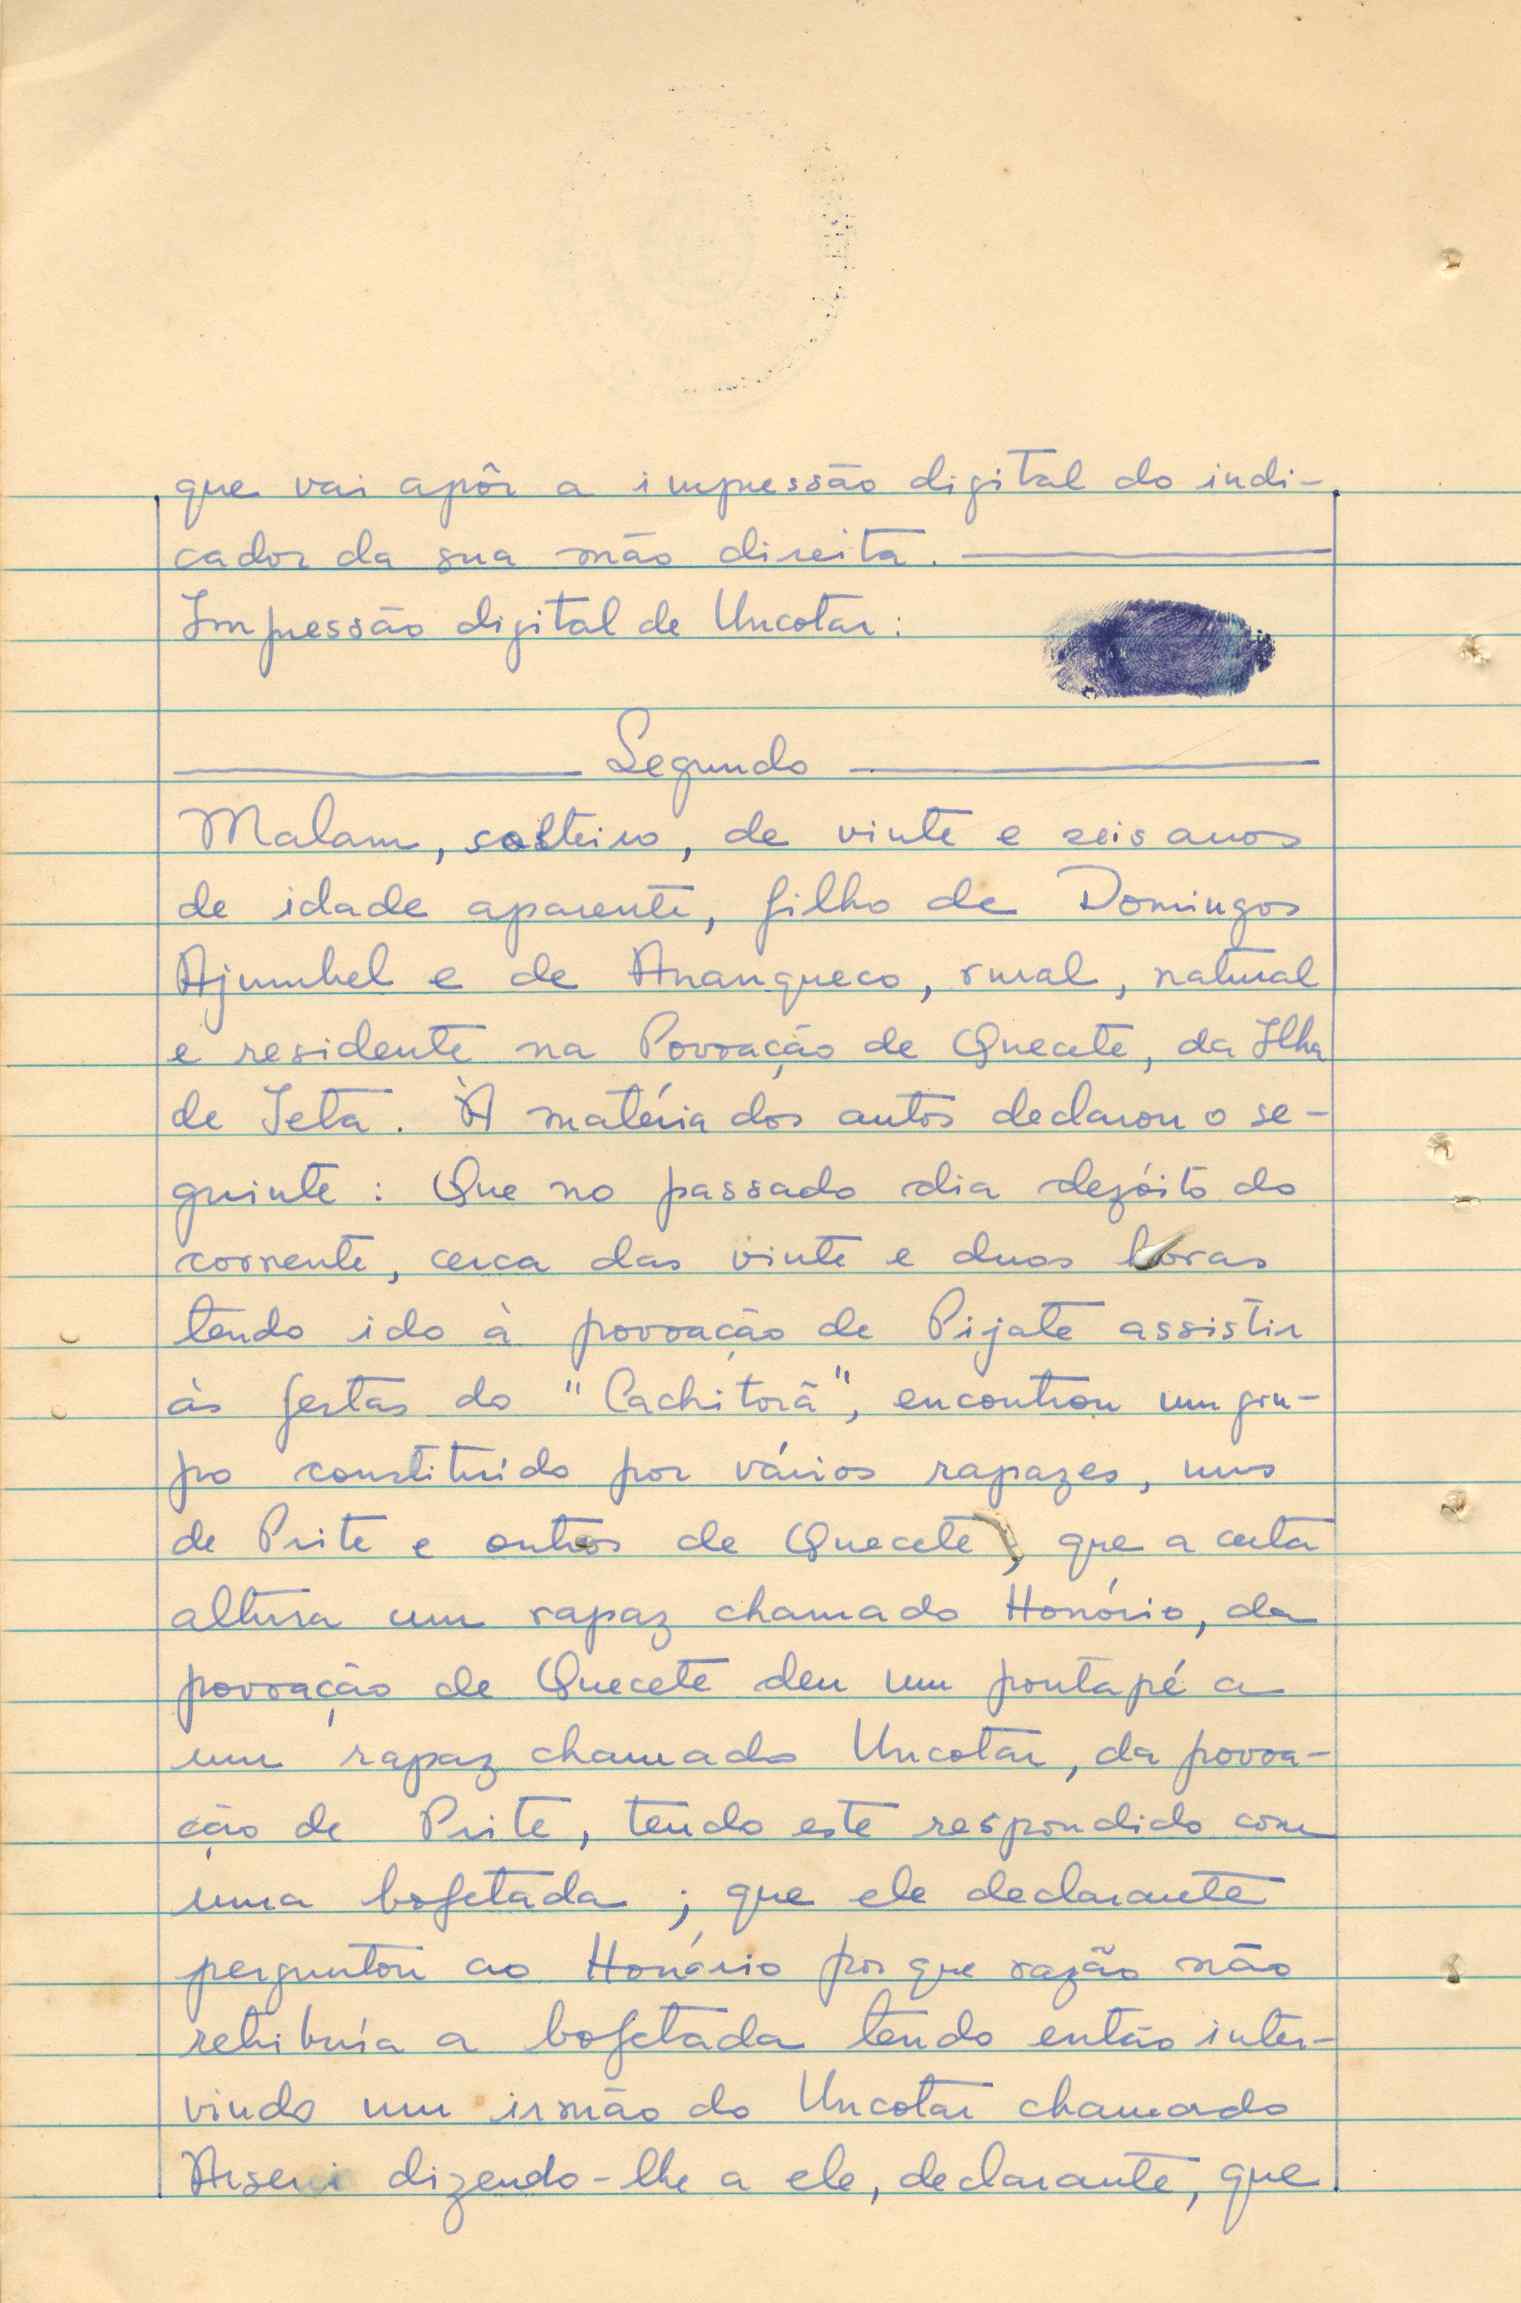 que vai apôr a impressão digital do indi-
cador da sua mão direita.
Impressão digital de Uncotar:
Segundo
Malam, solteiro, de vinte e seis anos
de idade aparente, filho de Domingos
Ajumbel e de Ananqueco, rural, natural
e residente na Povoação de Quecete, da Ilha
de Jeta. À matéria dos autos declarou o se-
guinte: Que no passado dia dezóito do
corrente, cerca das vinte e duas horas
tendo ido à povoação de Pijate assistir
às festas do "Cachitorã", encontrou um gru-
po constituído por vários rapazes, uns
de Prite e outros de Quecete, que a certa
altura um rapaz chamado Honório, da
povoação de Quecete deu um pontapé a
um rapaz chamado Uncotar, da povoa-
ção de Prite, tendo este respondido com
uma bofetada; que ele declarante
perguntou ao Honório por que razão não
retribuía a bofetada tendo então inter-
vindo um irmão do Uncotar chamado
Arseni dizendo-lhe a ele, declarante, que